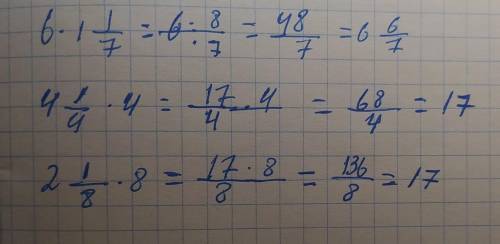 6 · 1 1/7 = 6 · 8/· 7 = 48/7 = 6 6/7
4 1/4 · 4 = 17 · 4/4 = 68/4 = 17
2 1/8 · 8 = 17 · 8/8 = 136/8 = 17